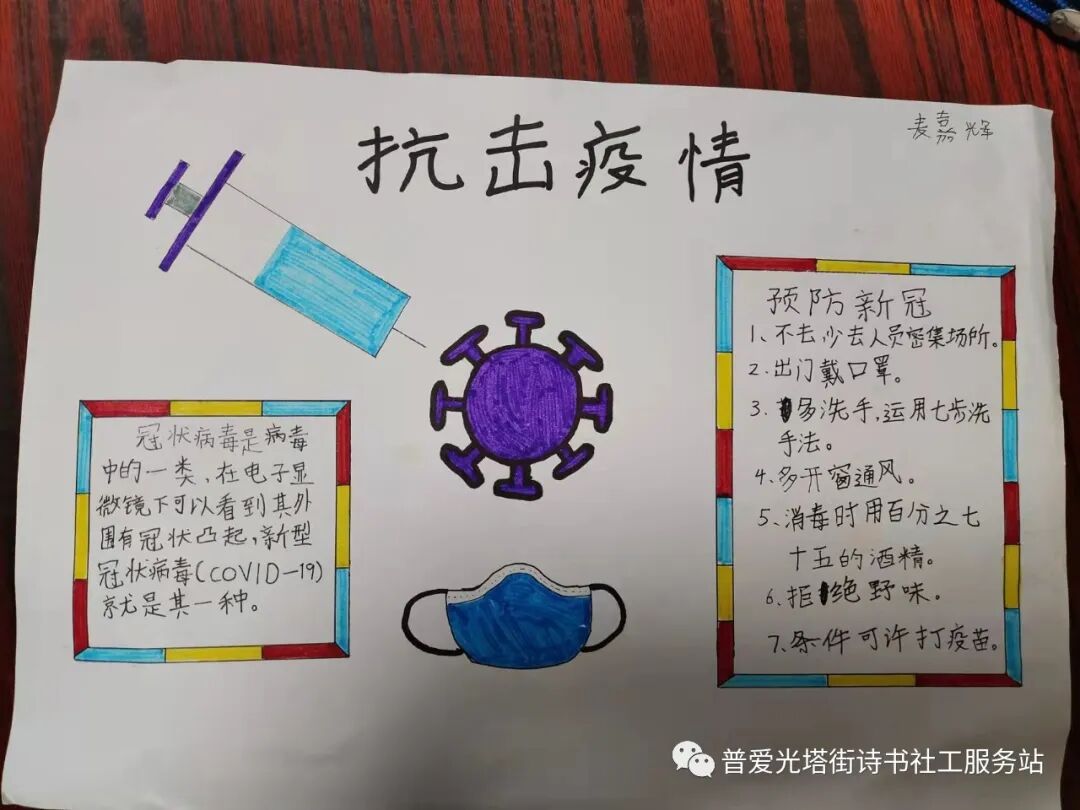 抗击疫情
麦嘉辉
冠状病毒是病毒
中的一类,在电子显
微镜下可以看到其外
围有冠状凸起,新型
冠状病毒(COVID-19)
就是其一种。
预防新冠
1、不去少去人员密集场所。
2.出门戴口罩。
3.多洗手,运用七步洗
手法。
4.多开窗通风。
5、消毒时用百分之七
十五的酒精。
6、拒绝野味。
7、条件可许打疫苗。
普爱光塔街诗书社工服务站